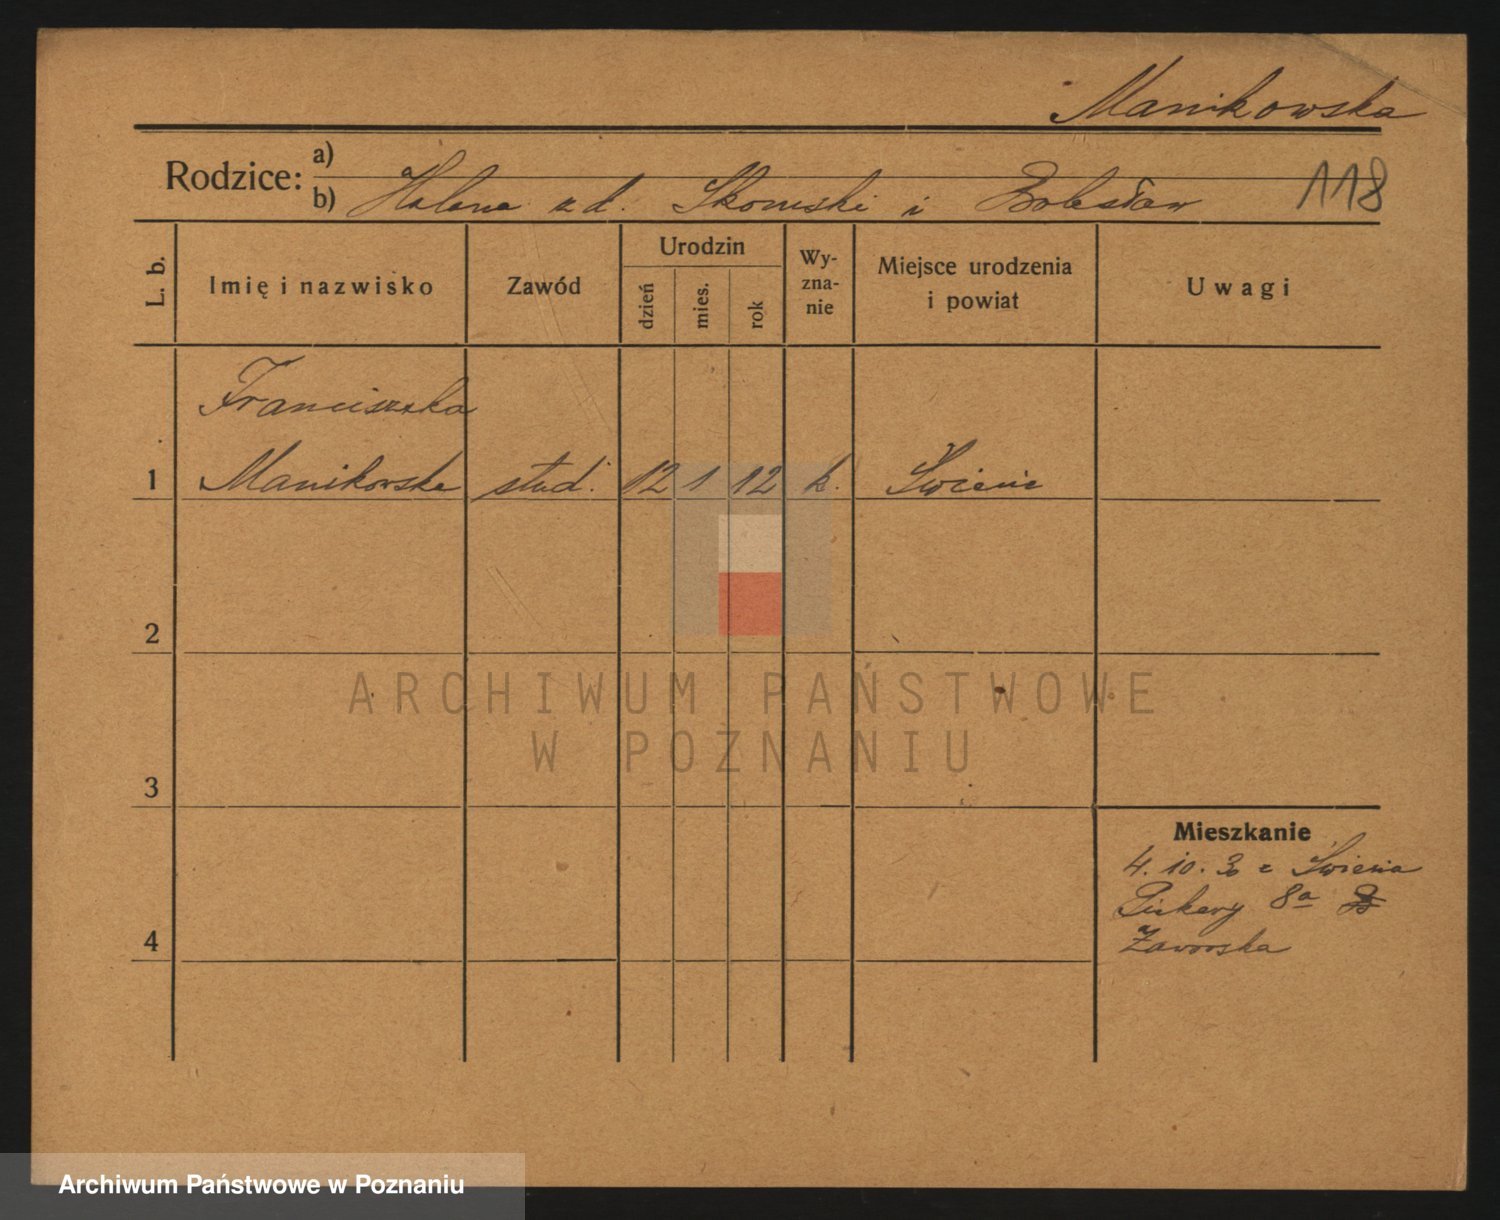 Manikowska
Rodzice:
a)
b) Halena z d. Skoruski i Bolesław
118
L. b.
Imię i nazwisko
Zawód
Urodzin
dzień
mies.
rok
Wy-
zna-
nie
Miejsce urodzenia
i powiat
Uwagi
Franciszka
1 Manikowska stud. 12 1 12 k. Świerie
2
3
4
Mieszkanie
4. 10. 30 z
Piekary 8a
Zaworska
ARCHIWUM PAŃSTWOWE
W POZNANIU
Archiwum Państwowe w Poznaniu